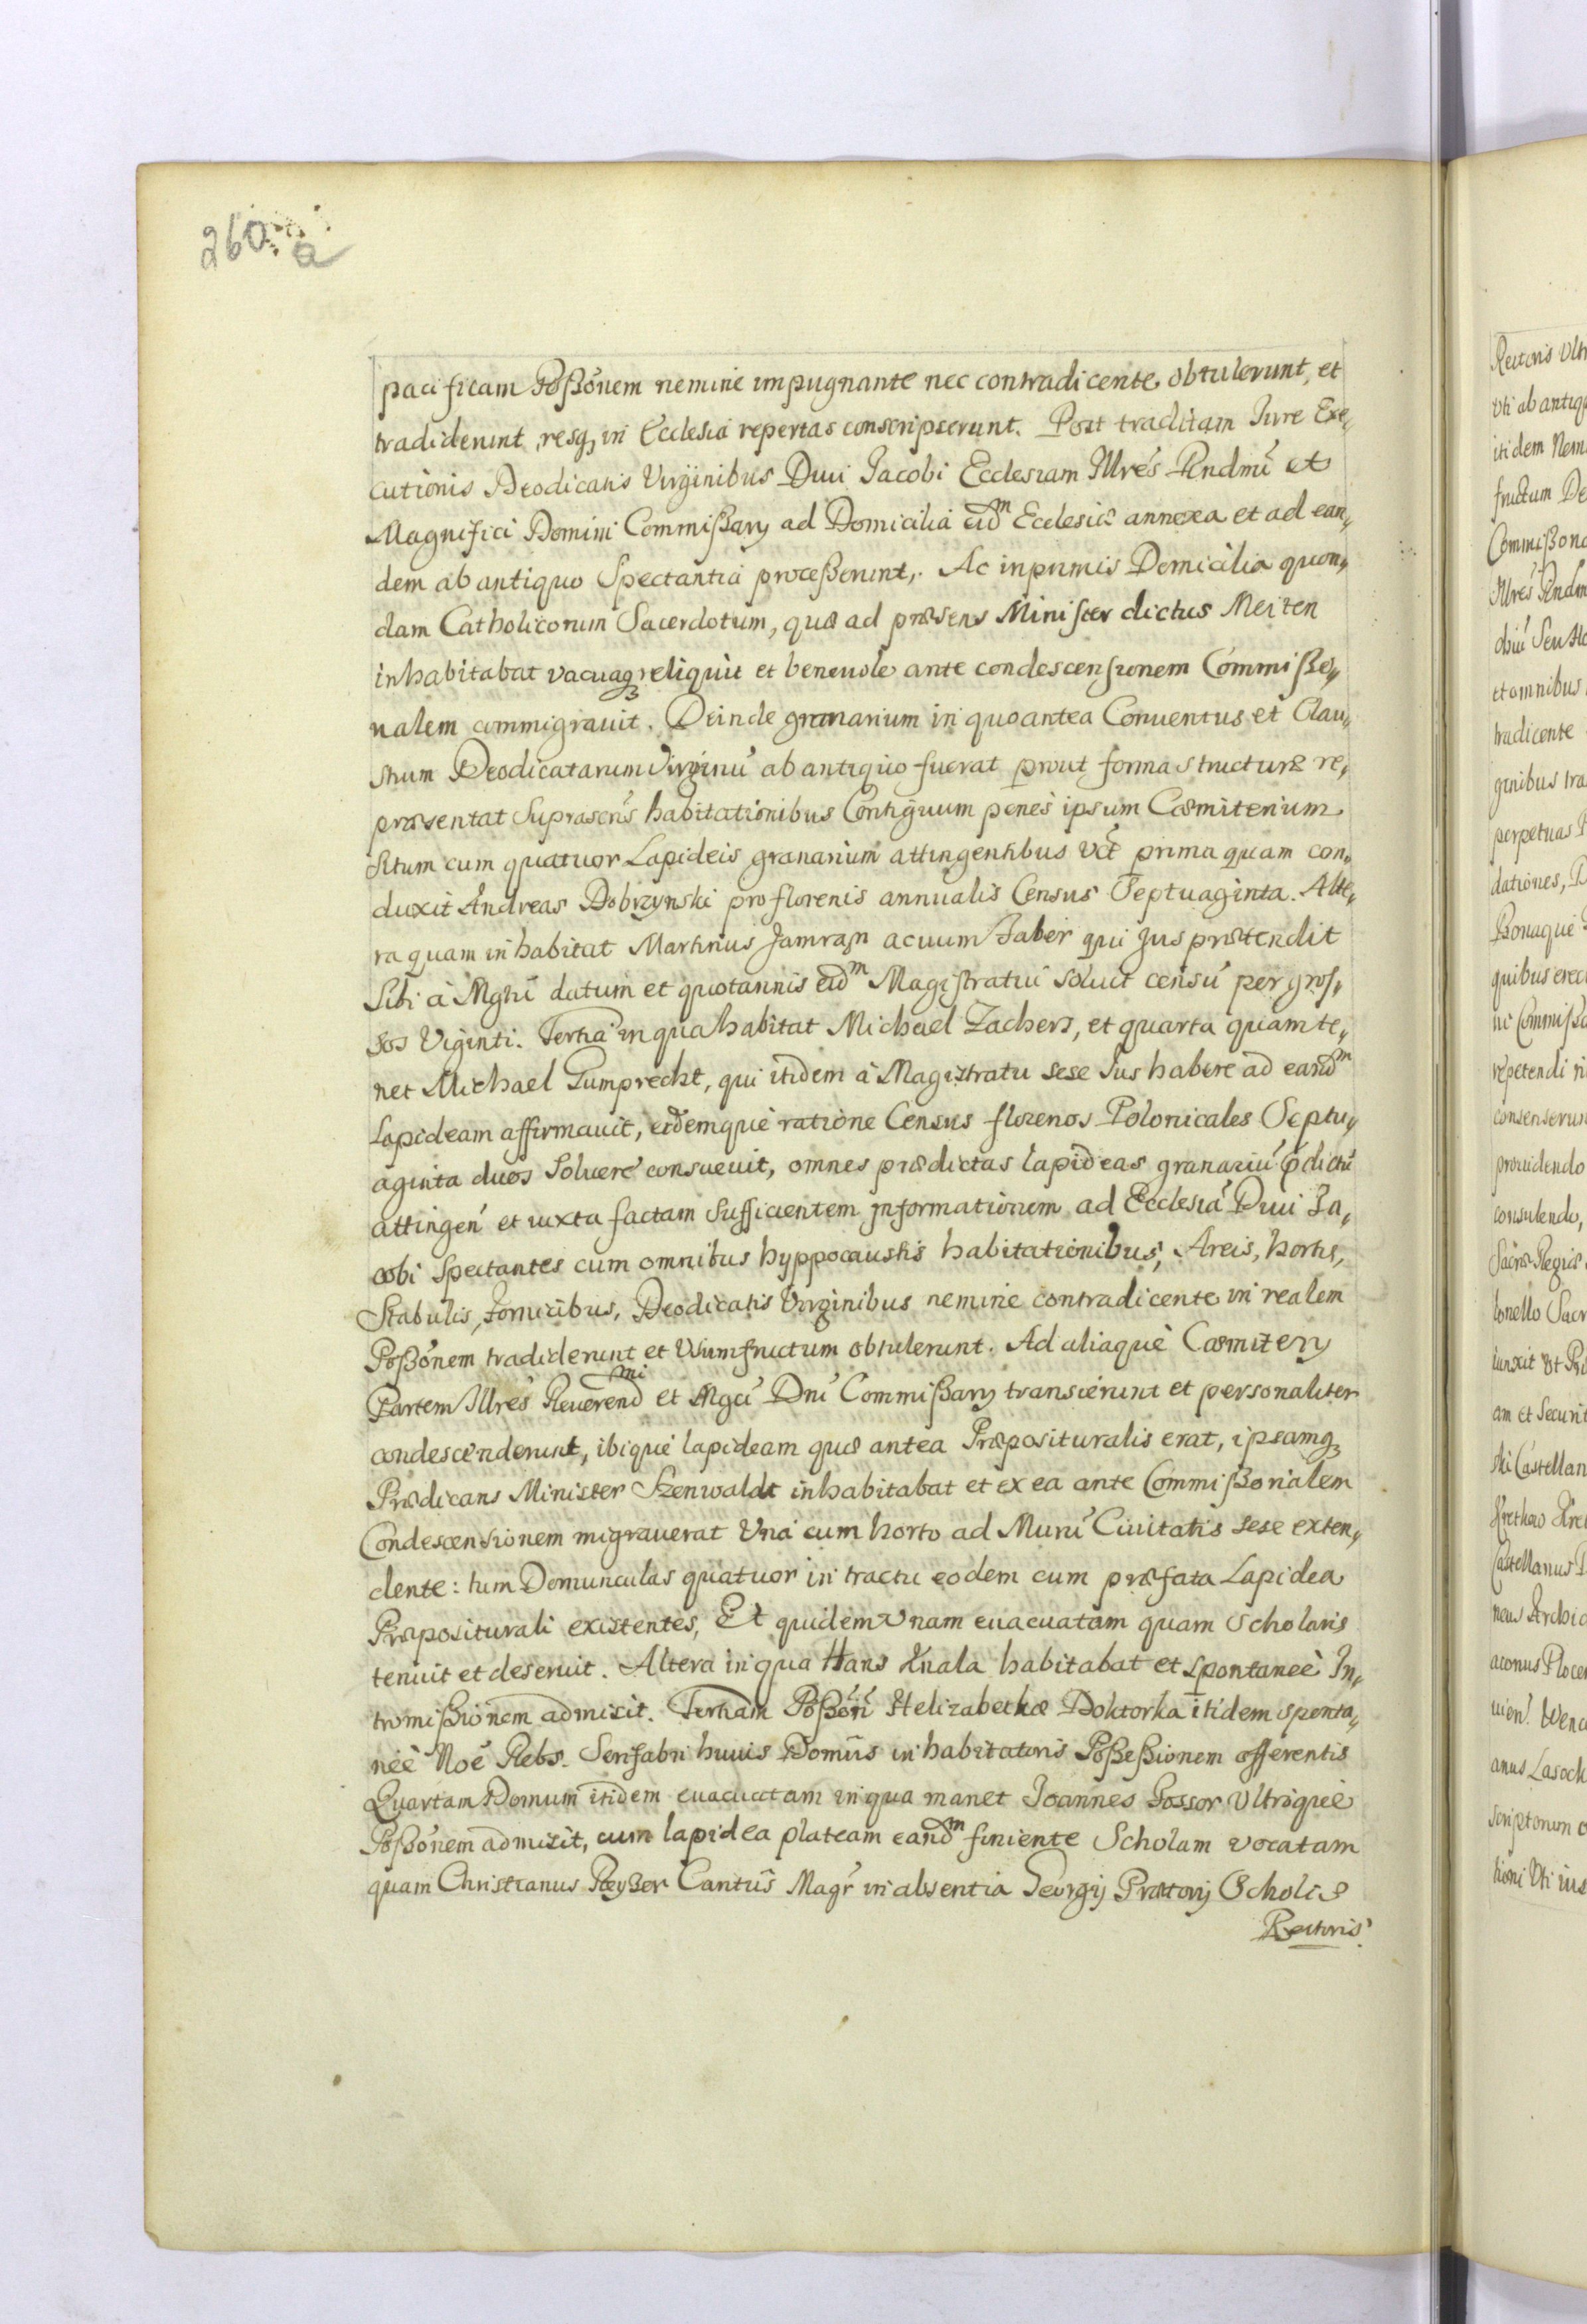 260 a
pacificam Poßónem nemine impugnante nec contradicente obtulerunt, et
tradiderunt, resq3 in Ecclesia repertas conscripserunt. Post traditam Iure Exe„
cutionis Deodicatis Virginibus Diui Jacobi Ecclesiam Illrés Rndmi et
Magnifici Domini Commißarij ad Domicilia eidm Ecclesiæ annexa et ad ean„
dem ab antiquo Spectantia proceßerunt. Ac inprimis Domicilia quon„
dam Catholicorum Sacerdotum, quæ ad præsens Minister dictus Meiten
inhabitabat vacuaq3 reliquit et beneuole ante condescensionem Commißo„
nalem commigrauit. Deinde granarium in quo antea Conuentus et Clau„
strum Deodicatarum Virginũ ab antiquo fuerat prout forma structuræ re„
præsentat Suprascrís habitationibus Contiguum penes ipsum Cæmiterium
situm cum quatuor Lapideis granarium attingentibus vct prima quam con„
duxit Andreas Dobrzynski pro florenis annualis Census Septuaginta. Alte„
ra quam inhabitat Martinus Jamrasn acuum Faber qui Jus prætendit
Sibi à Mgrũ datum et quotannis eidm Magistratui soluit censũ per gros„
sos Viginti. Tertia in qua habitat Michael Zachers, et quarta quam te„
net Michael Gumprecht, qui itidem à Magistratu sese Ius habere ad eandm
Lapideam affirmauit, eidemque ratione Census florenos Polonicales Septu„
aginta duos Soluere consueuit, omnes prædictas lapideas granariũ pdictũ
attingen et iuxta factam Sufficientem informationem ad Ecclesiã Diui Ja„
cobi Spectantes cum omnibus hyppocaustis habitationibus, Areis, hortis,
Stabulis, fornicibus, Deodicatis Virginibus nemine contradicente in realem
Poßónem tradiderunt et Usumfructum obtulerunt. Ad aliaque Cæmiterij
Partem Illrés Reuerendmi et Mgci Dni Commißarij transierunt et personaliter
condescenderunt, ibique lapideam quæ antea Præposituralis erat, ipsamq3
Prædicans Minister Szenwaldt inhabitabat et ex ea ante Commißorialem
Condescensionem migrauerat Vna cum horto ad Murũ Ciuitatis sese exten„
dente: tum Domunculas quatuor in tractu eodem cum præfata Lapidea
Præpositurali existentes, Et quidem Vnam euacuatam quam Scholaris
tenuit et deseruit. Altera in qua Hans Knala habitabat et spontaneè In„
tromißionem admisit. Tertiam Poßóri Helizabethæ Doktorka itidem sponta„
neè Noé Rebs. Serifabri huius Domûs inhabitatoris Poßeßionem offerentis
Quartam Domum itidem euacuatam in qua manet Joannes Possor Vltroque
Poßónem admisit, cum lapidea plateam eandm finiente Scholam vocatam
quam Christianus Reyßer Cantûs Magr in absentia Georgij Prætorij Scholæ
Rectoris